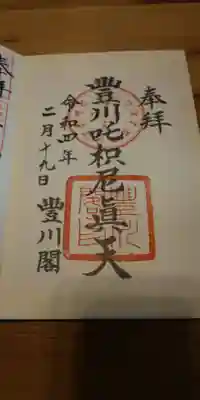 奉拝
豊川吒枳尼眞天
令和四年
二月十九日
豊川閣